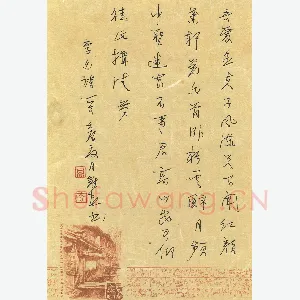 吾爱孟夫子风流天下闻红颜
弃轩冕白首卧松云醉月频
中圣迷花不事君高山安可仰
徒此揖清芬
李白诗
Shufawang.CN